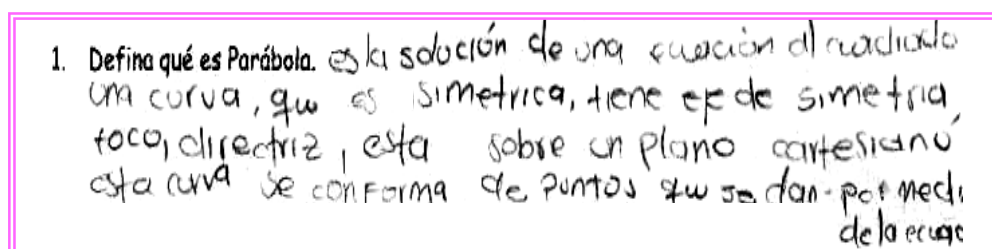 1. Defina qué es Parábola. es la solución de una cuación al cuadrado
una curva, que es simetrica, tiene eje de simetria
foco, directriz, esta sobre un plano cartesiano
esta curva se conforma de puntos que se dan por medi
de la ecuac